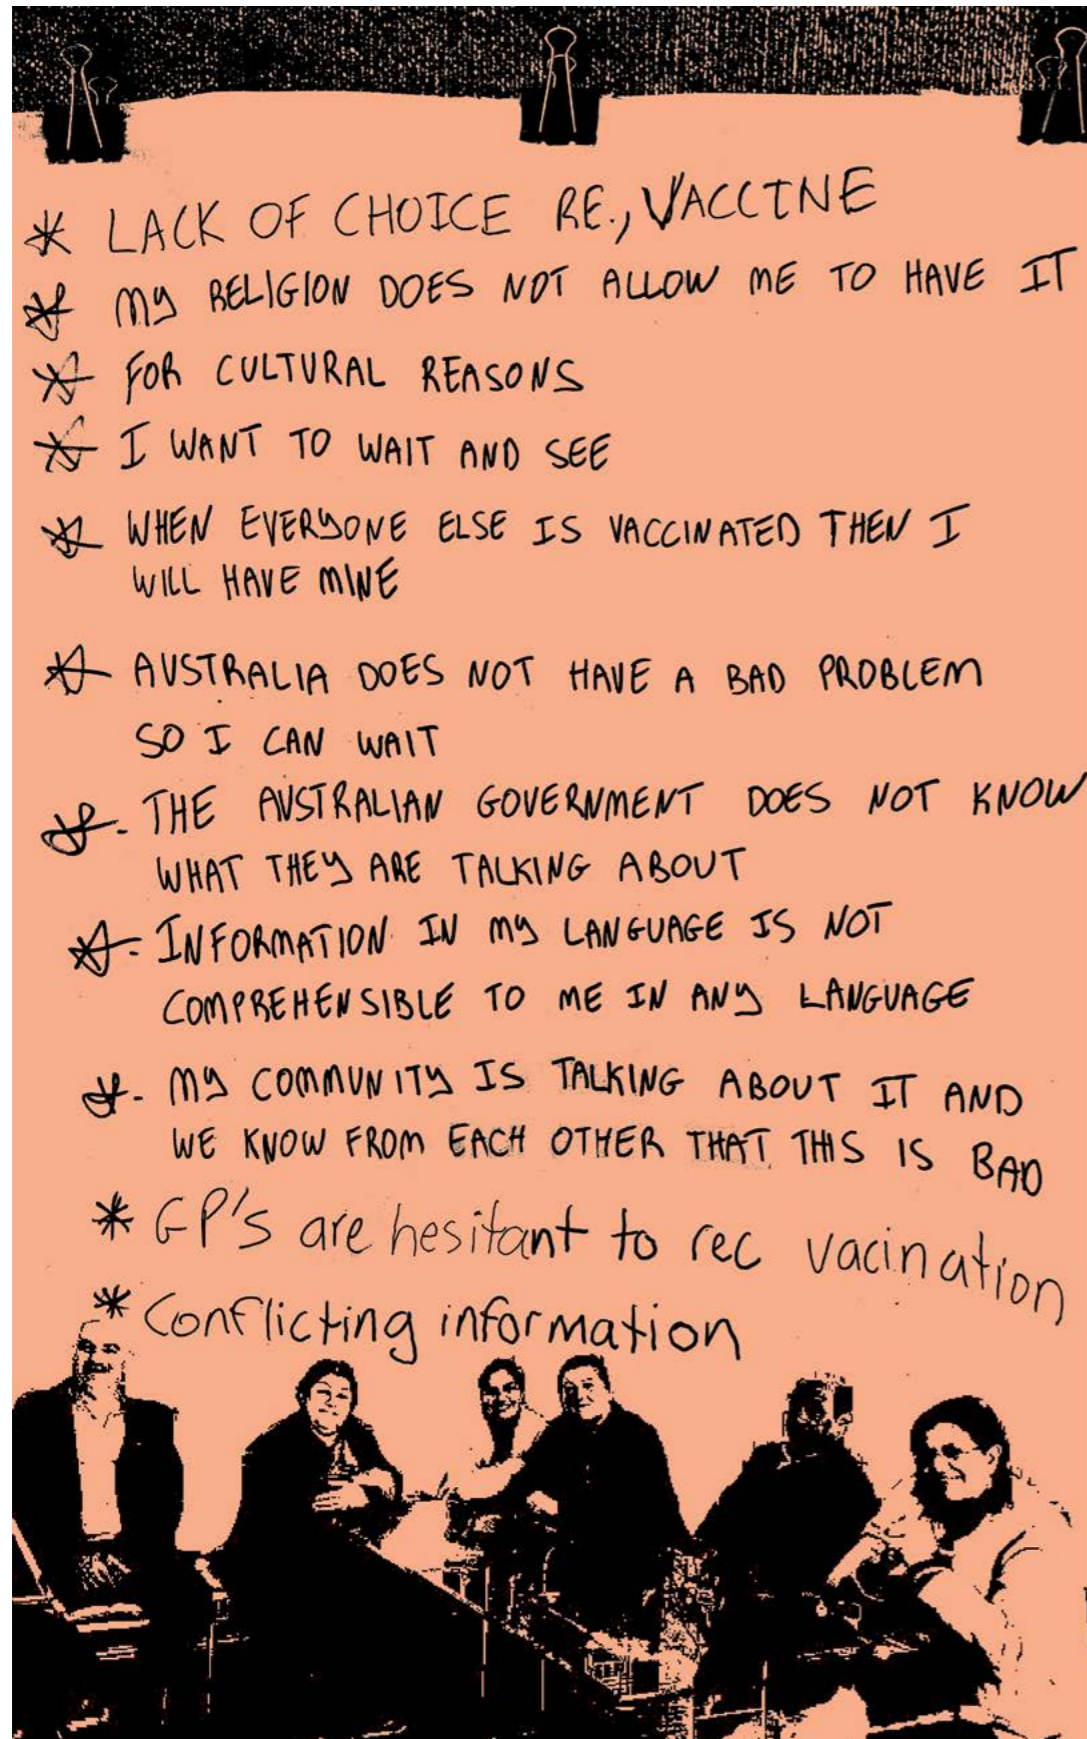 * LACK OF CHOICE RE., VACCINE
* MY RELIGION DOES NOT ALLOW ME TO HAVE IT
* FOR CULTURAL REASONS
* I WANT TO WAIT AND SEE
* WHEN EVERYONE ELSE IS VACCINATED THEN I
WILL HAVE MINE
* AUSTRALIA DOES NOT HAVE A BAD PROBLEM
SO I CAN WAIT
* - THE AUSTRALIAN GOVERNMENT DOES NOT KNOW
WHAT THEY ARE TALKING ABOUT
* - INFORMATION IN MY LANGUAGE IS NOT
COMPREHENSIBLE TO ME IN ANY LANGUAGE
* - MY COMMUNITY IS TALKING ABOUT IT AND
WE KNOW FROM EACH OTHER THAT THIS IS BAD
* GP's are hesitant to rec vacination
* Conflicting information